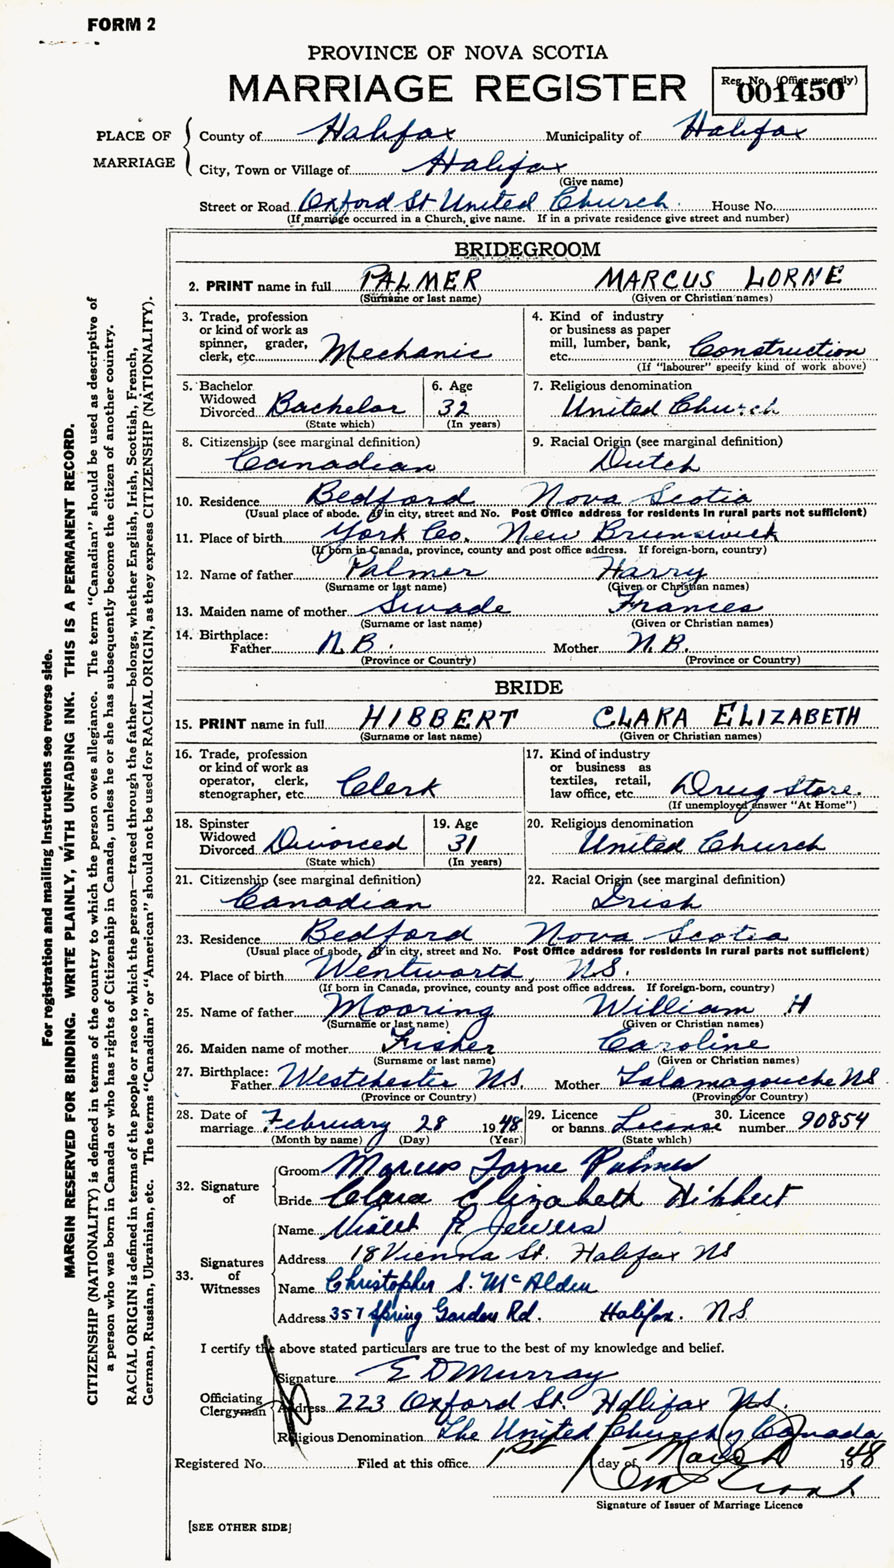 FORM 2
PROVINCE OF NOVA SCOTIA
MARRIAGE REGISTER
Reg. No. (Office use only)
001450
PLACE OF MARRIAGE
County of Halifax Municipality of Halifax
City, Town or Village of Halifax
(Give name)
Street or Road Oxford St United Church House No.
(If marriage occurred in a Church, give name. If in a private residence give street and number)
BRIDEGROOM
2. PRINT name in full PALMER MARCUS LORNE
(Surname or last name) (Given or Christian names)
3. Trade, profession or kind of work as spinner, grader, clerk, etc. Mechanic
4. Kind of industry or business as paper mill, lumber, bank, etc. Construction
(If "labourer" specify kind of work above)
5. Bachelor Widowed Divorced Bachelor
(State which)
6. Age 32
(In years)
7. Religious denomination United Church
8. Citizenship (see marginal definition) Canadian
9. Racial Origin (see marginal definition) Dutch
10. Residence Bedford Nova Scotia
(Usual place of abode. If in city, street and No. Post Office address for residents in rural parts not sufficient)
11. Place of birth York Co. New Brunswick
(If born in Canada, province, county and post office address. If foreign-born, country)
12. Name of father Palmer Harry
(Surname or last name) (Given or Christian names)
13. Maiden name of mother Swade Frances
(Surname or last name) (Given or Christian names)
14. Birthplace: Father N.B. Mother N.B.
(Province or Country) (Province or Country)
BRIDE
15. PRINT name in full HIBBERT CLARA ELIZABETH
(Surname or last name) (Given or Christian names)
16. Trade, profession or kind of work as operator, clerk, stenographer, etc. Clerk
17. Kind of industry or business as textiles, retail, law office, etc. Drug Store.
(If unemployed answer "At Home")
18. Spinster Widowed Divorced Divorced
(State which)
19. Age 31
(In years)
20. Religious denomination United Church
21. Citizenship (see marginal definition) Canadian
22. Racial Origin (see marginal definition) Irish
23. Residence Bedford Nova Scotia
(Usual place of abode. If in city, street and No. Post Office address for residents in rural parts not sufficient)
24. Place of birth Wentworth, N.S.
(If born in Canada, province, county and post office address. If foreign-born, country)
25. Name of father Mooring William H
(Surname or last name) (Given or Christian names)
26. Maiden name of mother Fisher Caroline
(Surname or last name) (Given or Christian names)
27. Birthplace: Father Westchester N.S. Mother Talamagouche NS
(Province or Country) (Province or Country)
28. Date of marriage February 28 1948
(Month by name) (Day) (Year)
29. Licence or banns License
(State which)
30. Licence number 90854
32. Signature of
Groom Marcus Lorne Palmer
Bride Clara Elizabeth Hibbert
33. Signatures of Witnesses
Name Violet R Jewers
Address 18 Vienna St. Halifax NS
Name Christopher S. McAlden
Address 357 Spring Garden Rd. Halifax. N.S.
I certify the above stated particulars are true to the best of my knowledge and belief.
Officiating Clergyman
Signature E D Murray
Address 223 Oxford St. Halifax N.S.
Religious Denomination The United Church of Canada
Registered No. Filed at this office 1st day of March 1948
Signature of Issuer of Marriage Licence
[SEE OTHER SIDE]
For registration and mailing instructions see reverse side.
MARGIN RESERVED FOR BINDING. WRITE PLAINLY, WITH UNFADING INK. THIS IS A PERMANENT RECORD.
CITIZENSHIP (NATIONALITY) is defined in terms of the country to which the person owes allegiance. The term "Canadian" should be used as descriptive of
a person who was born in Canada or who has rights of Citizenship in Canada, unless he or she has subsequently become the citizen of another country.
RACIAL ORIGIN is defined in terms of the people or race to which the person—traced through the father—belongs, whether English, Irish, Scottish, French,
German, Russian, Ukrainian, etc. The terms "Canadian" or "American" should not be used for RACIAL ORIGIN, as they express CITIZENSHIP (NATIONALITY).